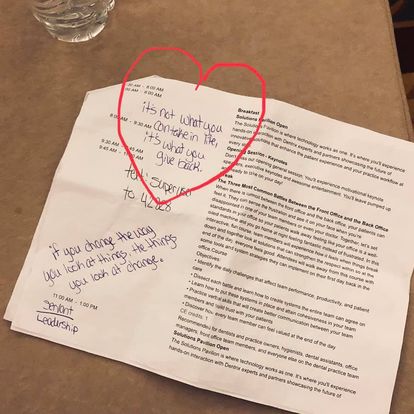 7:30 AM - 8:00 AM
7:30 AM - 8:00 AM
8:00 AM - 9:30 AM
9:30 AM - 9:45 AM
9:45 AM -
it's not what you
can take in life,
it's what you
give back.
text: Superuser
to 42828
if you change the way
you look at things, the things
you look at change.
11:00 AM - 1:00 PM
Servant
Leadership
Breakfast
Solutions Pavilion Open
The Solutions Pavilion is where technology works as one. It's where you'll experience
hands-on interaction with Dentrix experts and partners showcasing the future of
innovative systems that enhance the patient experience and your practice workflow at
every
Opening Session - Keynotes
Don't miss our opening general session. You'll experience motivational keynote
every executive keynotes and awesome entertainment. You'll leave pumped up
and ready to take on your day!
Break
The Three Most Common Battles Between the Front Office and the Back Office
When there is turmoil between the front office and the back office, your patients can
feel it. They can sense the frustration and see it on your face when you are
disappointed in one of your team members or even your doctor. Together, let's set
standards in your office so your patients walk away saying your team is a well-oiled
machine and you go home at night feeling fantastic instead of frustrated. In this
interactive, fun course, learn how
dynamics, and what solutions
end of the day, everyone feels good. Attendees will walk away from this course with
some tools and systems strategies they can implement on their first day back in the
office.
Objectives:
• Identify the daily challenges that affect team performance, productivity, and patient
care
• Dissect each battle and learn how to create systems the entire team can agree on
• Learn how to put these systems in place and attain cohesiveness in your team
• Practice verbal skills that will create better communication between your team
members
• Discover how every team member can feel valued at the end of the day
CE credits: 1
Recommended for dentists and practice owners, hygienists, dental assistants, office
managers, front office team members, and everyone else on the dental practice team
Solutions Pavilion Open
The Solutions Pavilion is where technology works as one. It's where you'll experience
hands-on interaction with Dentrix experts and partners showcasing the future of